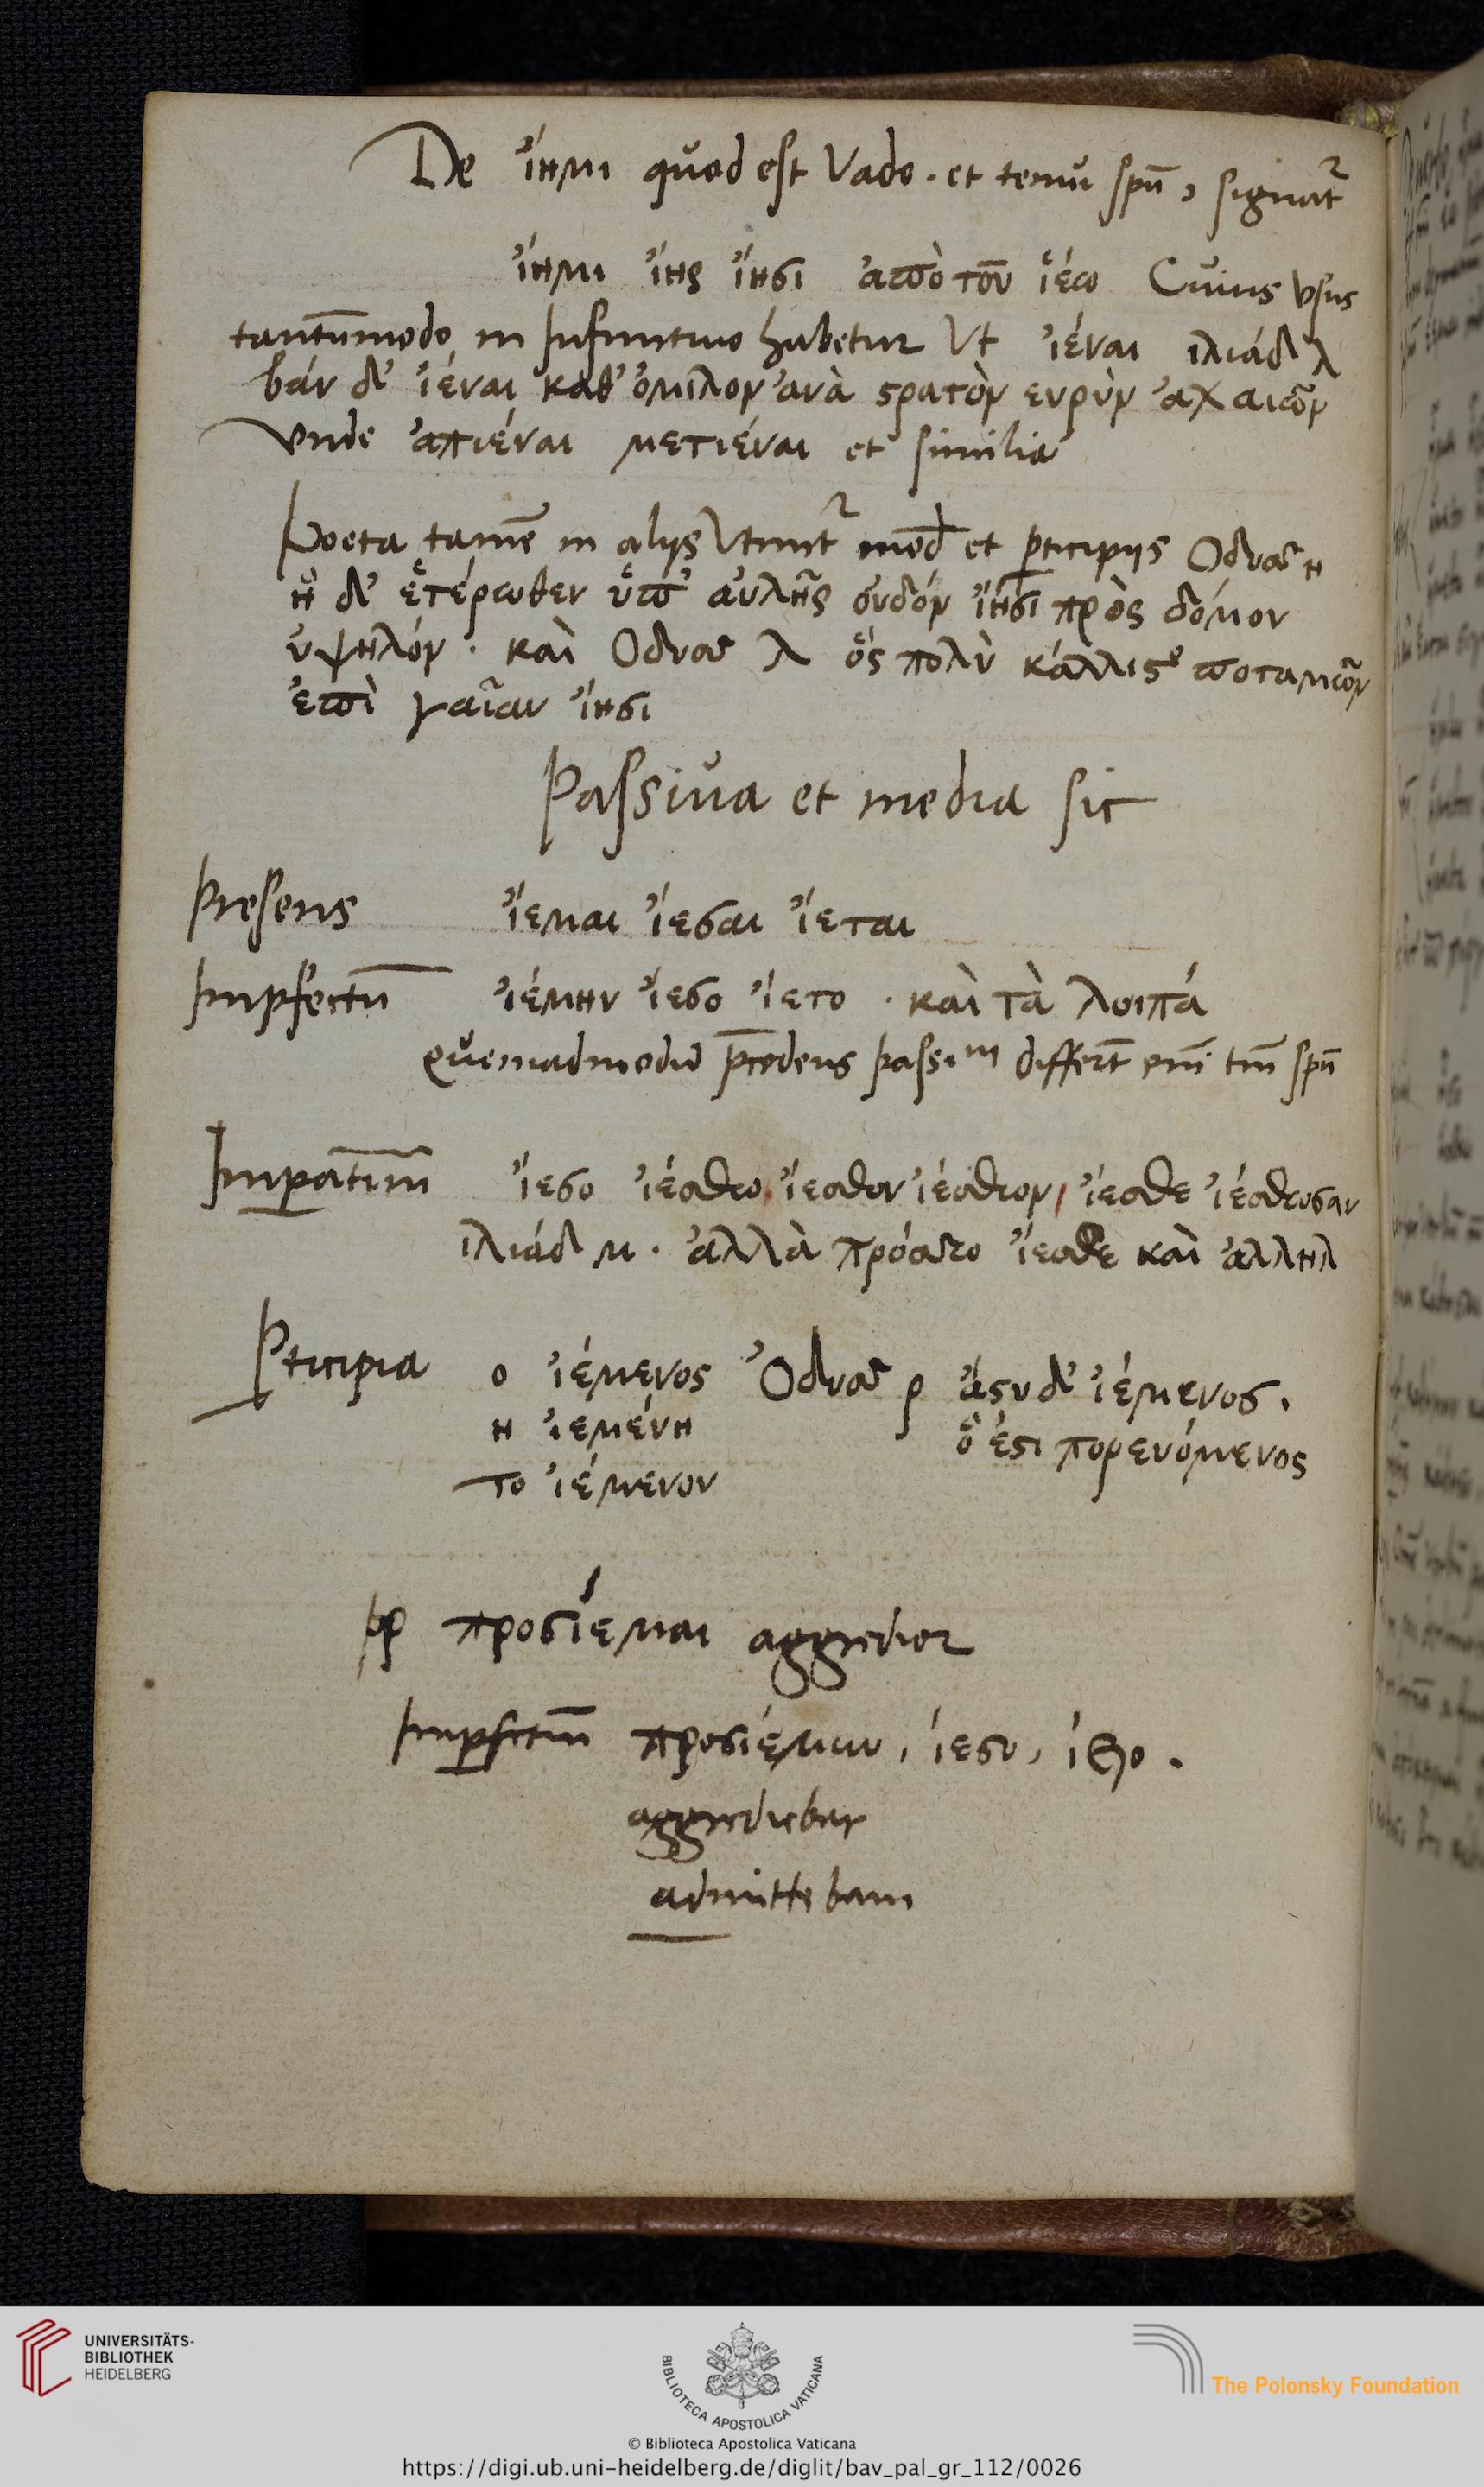 De ἴημι quod est Vado . et tenui spū , signat᷑
ἴημι ἴης ἴησι ἀπὸ τοῦ ἱέω Cuius vsus
tantūmodo in Infinitiuo habetur Vt ἰέναι ἰλιάδ λ
βάν δ' ἰέναι καθ' ὀμῖλον ἀνὰ στρατὸν ευρὺν ἀχαιῶν
vnde ἀπιέναι μετιέναι et similia
Poeta tamē in alijs Vtunt᷑ mod et pticipijs Οδυσ η
ἣ δ' ἑτέρωθεν ὑπ' αὐλῆς οὐδόν ἴησι πρὸς δόμον
ὑψηλόν . καὶ Οδυσ λ ὅς πολὺ κάλλιστο ποταμῶν
ἐπὶ γαῖαν ἴησι
Passiua et media sic
Presens ἴεμαι ἴεσαι ἴεται
Impfectū ἰέμην ἴεσο ἴετο . καὶ τὰ λοιπά
quemadmodū p̄cedens passiui differt eni tm̄ spū
Imperatiuū ἴεσο ἰέσθω, ἴεσθον ἰέσθων, ἴεσθε ἰέσθωσαν
ἰλιάδ μ . ἀλλὰ πρόσσω ἴεσθε καὶ ἀλλήλ
Pticipia ο ἰέμενος Ὀδυσ ρ ἄστυδ' ἰέμενος .
η ἰεμένη ὅ ἐστι πορευόμενος
το ἰέμενον
pp προσίεμαι aggredior
Impfectū προσιέμην, ίεσο, ίετο .
aggrediebar
admittebam
UNIVERSITÄTS-
BIBLIOTHEK
HEIDELBERG
BIBLIOTECA APOSTOLICA VATICANA
The Polonsky Foundation
© Biblioteca Apostolica Vaticana
https://digi.ub.uni-heidelberg.de/diglit/bav_pal_gr_112/0026